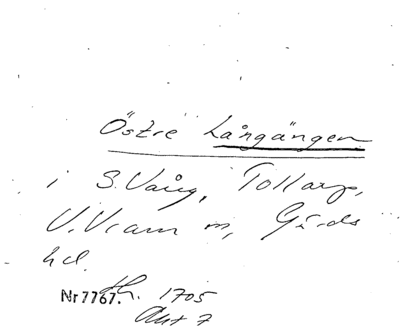 Östre Långängen
i S. Vång, Tollarp,
V. Vram m, Gärds
hd.
Nr 7767. 1705
Akt 7